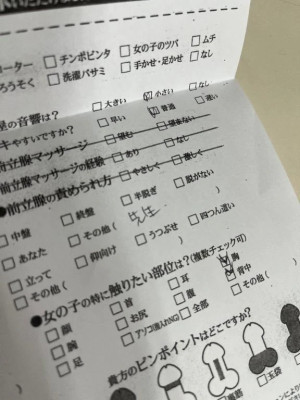 □チンポビンタ □女の子のツバ □ムチ
ろうそく □洗濯バサミ □手かせ・足かせ □なし
の音響は? □大きい □小さい □なし
キやすいですか? □早い □普通 □遅い
前立腺マッサージ □望む □望まない
前立腺マッサージの経験 □あり □なし
●前立腺の責められ方 □やさしく □激しく
□中盤 □終盤 □半脱ぎ □脱がない
□あなた □その他( 先生 )
□立って □仰向け □うつぶせ □四つん這い
□その他( )
●女の子の特に触りたい部位は?(複数チェック可)
□顔 □首 □耳 □胸
□腕 □お尻 □腹 □背中
□足 □アソコ(挿入はNG) □全部 □その他(
貴方のピンポイントはどこですか?
□玉袋